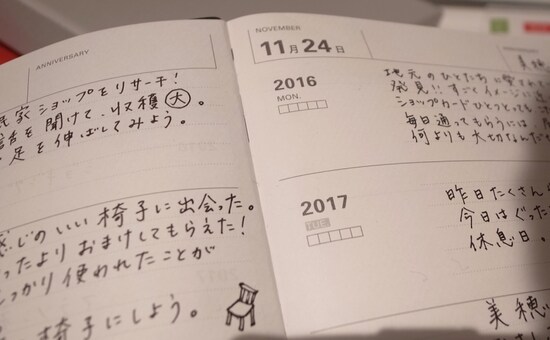 ANNIVERSARY
家ショップをリサーチ!
を聞けて、収穫大。
足を伸ばしてみよう。
じのいい椅子に出会った。
ったよりおまけしてもらえた!
っかり使われたことが
椅子にしよう。
NOVEMBER
11月24日
2016
MON.
地元のひとたちに
発見!!すごくイメージに
ショップカードひとつとっても
毎日通ってもらうには
何よりも大切なんだ
2017
TUE.
昨日たくさん
今日はぐった
休息日。
美穂